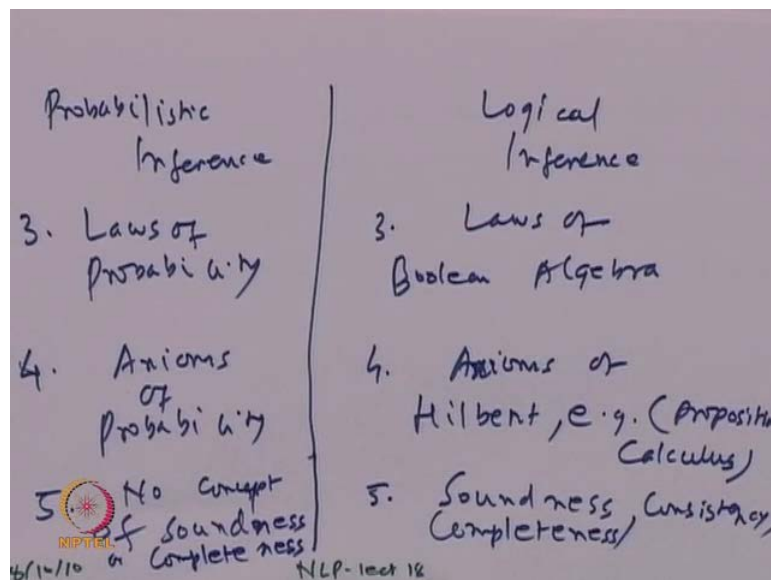 Probabilistic
Inference
3. Laws of
Probability
4. Axioms
of
Probability
5. No concept
of soundness
or completeness
Logical
Inference
3. Laws of
Boolean Algebra
4. Axioms of
Hilbert, e.g. (Propositi
Calculus)
5. Soundness, Consistency,
Completeness,
NPTEL
NLP-lect 18